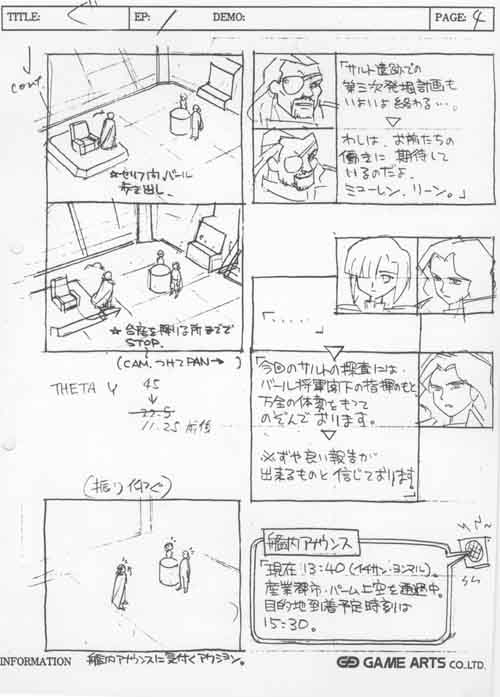 TITLE: ぐ EP: 1 DEMO: PAGE: 4
CONT
☆セリフ内、バール
歩き出し。
「サルト遺跡での
第三次発掘計画も
いよいよ終わる…。
▽
わしは、お前たちの
働きに期待して
いるのだよ、
ミューレン、リーン。」
☆台座を降りる所までで
STOP.
(CAM. つけてPAN→)
THETA Y 45
↓
22.5
11.25
「.....」
▽
「今回のサルトの探査には、
バール将軍閣下の指揮のもと
万全の体勢をもって
のぞんでおります。
▽
必ずや良い報告が
出来るものと信じております。」
(振り仰ぐ)
艦内アナウンス
「現在13:40(イチサン・ヨンマル)。
産業都市・パーム上空を通過中。
目的地到着予定時刻は
15:30。
艦内アナウンスに気付くアクション。
INFORMATION
GAME ARTS CO.LTD.